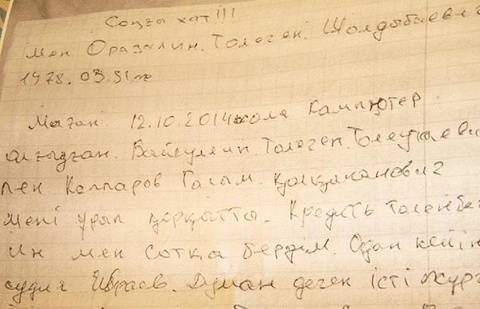 Соңғы хат!!!
Мен Оразалин. Төлеген. Шолдыбаевич
1978. 03. 31ж
Маған. 12.10.2014жола Компютер
алғызған. Байгуллин. Төлеген. Төлеутаеви
пен Каппаров Ғалым. Қалқаманович
мені ұрып қорқытты. Кредить төленбе
ін мен сотқа бердім. Одан кейін
судия Ибраев. Думан деген істі жүрг